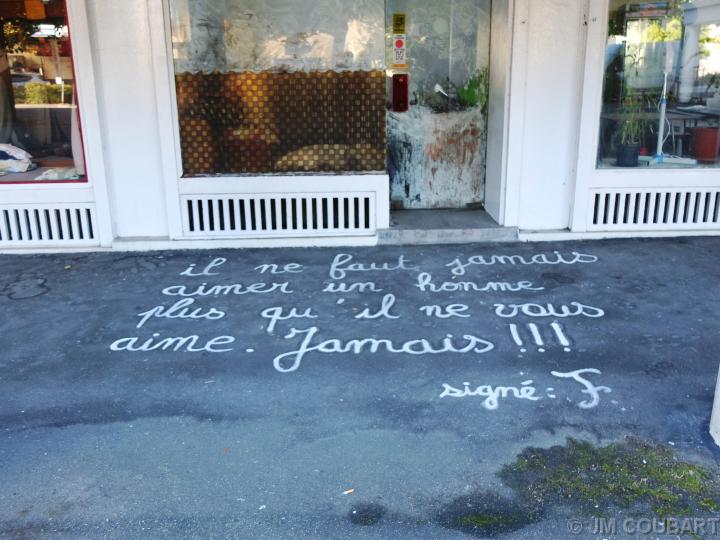 il ne faut jamais
aimer un homme
plus qu'il ne vous
aime. Jamais !!!
signé: F.
© JM COUBART